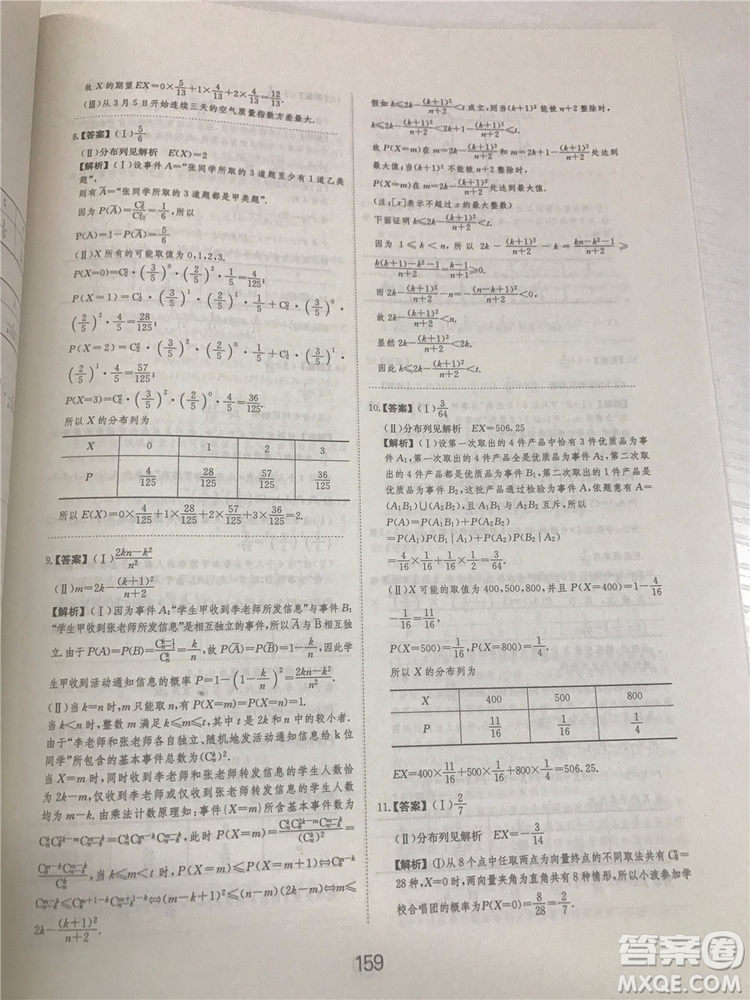 故 X 的期望 EX=0×5/13+1×4/13+2×4/13=12/13.
(Ⅲ)从 3 月 5 日开始连续三天的空气质量指数方差最大.
8.【答案】(Ⅰ)5/6
(Ⅱ)分布列见解析 E(X)=2
【解析】(Ⅰ)设事件 A="张同学所取的 3 道题至少有 1 道乙类
题",
则有 A̅="张同学所取的 3 道题都是甲类题".
P(A)=1-P(A̅)=5/6.
(Ⅱ)X 所有的可能取值为 0,1,2,3.
所以 X 的分布列为
X 0 1 2 3
P 4/125 28/125 57/125 36/125
所以 E(X)=0×4/125+1×28/125+2×57/125+3×36/125=2.
9.【答案】(Ⅰ)(2kn-k²)/n²
(Ⅱ)m=2k-(k+1)²/(n+2)
【解析】(Ⅰ)因为事件 A:"学生甲收到李老师所发信息"与事件 B:
"学生甲收到张老师所发信息"是相互独立的事件,所以 A̅ 与 B̅ 相互独
生甲收到活动通知信息的概率 P=1-(1-k/n)²=(2kn-k²)/n².
(Ⅱ)当 k=n 时,m 只能取 n,有 P(X=m)=P(X=n)=1.
当 k<n 时,整数 m 满足 k≤m≤t,其中 t 是 2k 和 n 中的较小者.
由于"李老师和张老师各自独立、随机地发活动通知信息给 k 位
同学"所包含的基本事件总数为(Cₙᵏ)².
当 X=m 时,同时收到李老师和张老师转发信息的学生人数恰为
2k-m,仅收到李老师或仅收到张老师转发信息的学生人数
均为 m-k.由乘法计数原理知:事件{X=m}所含基本事件数为
2k-(k+1)²/(n+2).
假如 k≤2k-(k+1)²/(n+2)<t 成立,则当(k+1)² 能被 n+2 整除时,
k≤2k-(k+1)²/(n+2)<2k+1-(k+1)²/(n+2)≤t.
故 P(X=m)在 m=2k-(k+1)²/(n+2)和 m=2k+1-(k+1)²/(n+2)处达到
最大值;
当(k+1)² 不能被 n+2 整除时,
达到最大值.
(注:[x]表示不超过 x 的最大整数)
下面证明 k≤2k-(k+1)²/(n+2)<t.
因为 1≤k<n,所以 2k-(k+1)²/(n+2)-k=(kn-k²-1)/(n+2)≥
(k(k+1)-k²-1)/(n+2)=(k-1)/(n+2)≥0.
而 2k-(k+1)²/(n+2)-n=-(n-k+1)²/(n+2)<0,
故 2k-(k+1)²/(n+2)<n.
显然 2k-(k+1)²/(n+2)<2k.
因此 k≤2k-(k+1)²/(n+2)<t.
10.【答案】(Ⅰ)3/64
(Ⅱ)分布列见解析 EX=506.25
【解析】(Ⅰ)设第一次取出的 4 件产品中恰有 3 件优质品为事
件 A₁,第一次取出的 4 件产品全是优质品为事件 A₂,第二次取出
的 4 件产品都是优质品为事件 B₁,第二次取出的 1 件产品是优
质品为事件 B₂,这批产品通过检验为事件 A,依题意有 A=
(A₁B₁)∪(A₂B₂),且 A₁B₁ 与 A₂B₂ 互斥,所以
P(A)=P(A₁B₁)+P(A₂B₂)
=P(A₁)P(B₁|A₁)+P(A₂)P(B₂|A₂)
=4/16×1/16+1/16×1/2=3/64.
(Ⅱ)X 可能的取值为 400,500,800,并且 P(X=400)=1-4/16
-1/16=11/16,
P(X=500)=1/16,P(X=800)=1/4.
所以 X 的分布列为
X 400 500 800
P 11/16 1/16 1/4
EX=400×11/16+500×1/16+800×1/4=506.25.
11.【答案】(Ⅰ)2/7
(Ⅱ)分布列见解析 EX=-3/14
【解析】(Ⅰ)从 8 个点中任取两点为向量终点的不同取法共有 C₈²=
28 种,两向量夹角为直角共有 8 种情形,所以小波参加学
校合唱团的概率为 P(X=0)=8/28=2/7.
159
答案圈
MXQE.COM